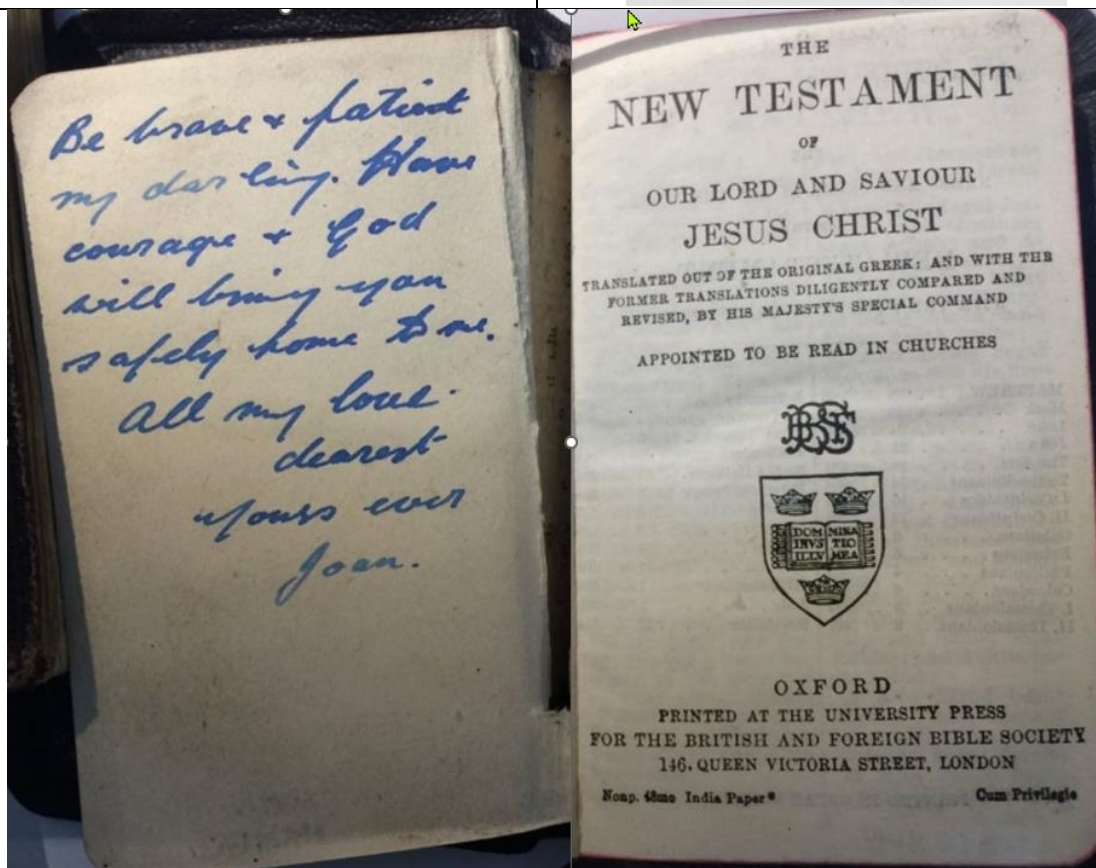 Be brave & patient
my darling. Have
courage & God
will bring you
safely home to me.
All my love.
dearest
yours ever
Joan.
THE
NEW TESTAMENT
OF
OUR LORD AND SAVIOUR
JESUS CHRIST
TRANSLATED OUT OF THE ORIGINAL GREEK: AND WITH THE
FORMER TRANSLATIONS DILIGENTLY COMPARED AND
REVISED, BY HIS MAJESTY'S SPECIAL COMMAND
APPOINTED TO BE READ IN CHURCHES
BFBS
DOMI MINA
INVS TIO
ILLV MEA
OXFORD
PRINTED AT THE UNIVERSITY PRESS
FOR THE BRITISH AND FOREIGN BIBLE SOCIETY
146, QUEEN VICTORIA STREET, LONDON
Nonp. 48mo India Paper*
Cum Privilegio